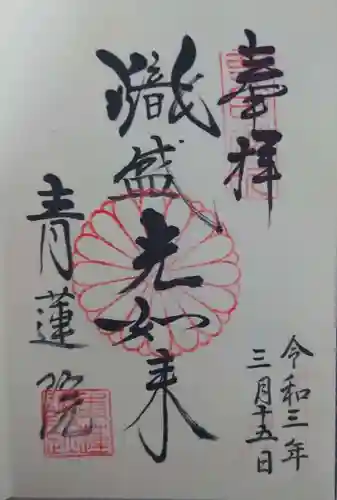 奉拝
熾盛光如来
青蓮院
令和三年
三月十五日